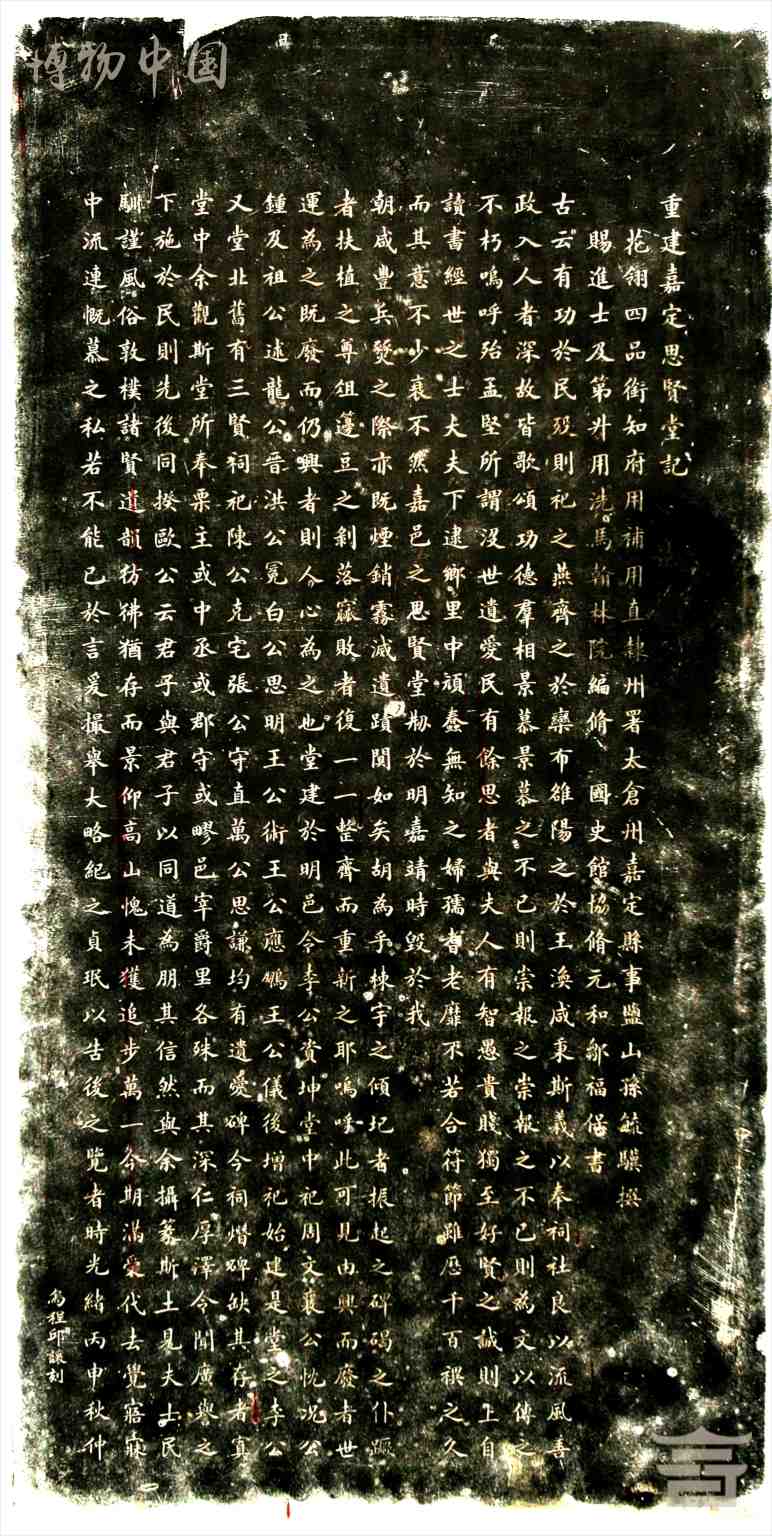 博物中国
重建嘉定思賢堂記
花翎四品銜知府用補用直隸州署太倉州嘉定縣事鹽山孫毓驥撰
賜進士及第升用洗馬翰林院編脩 國史館協脩元和鄒福保書
古云有功於民歿則祀之燕齊之於欒布雒陽之於王渙咸秉斯義以奉祠社良以流風善
政入人者深故皆歌頌功德羣相景慕景慕之不已則崇報之崇報之不已則為文以傳之
不朽嗚呼殆孟堅所謂沒世遺愛民有餘思者與夫人有智愚貴賤獨至好賢之誠則上自
讀書經世之士大夫下逮鄉里中頑蠢無知之婦孺耆老靡不若合符節雖歷千百禩之久
而其意不少衰不然嘉邑之思賢堂刱於明嘉靖時毀於我
朝咸豐兵燹之際亦既煙銷霧滅遺蹟闃如矣胡為乎棟宇之傾圮者振起之碑碣之仆踣
者扶植之尊俎籩豆之剝落窳敗者復一一整齊而重新之耶嗚呼此可見由興而廢者世
運為之既廢而仍興者則人心為之也堂建於明邑令李公資坤堂中祀周文襄公忱況公
鍾及祖公述龍公晉洪公冕白公思明王公術王公應鵬王公儀後增祀始建是堂之李公
又堂北舊有三賢祠祀陳公克宅張公守直萬公思謙均有遺愛碑今祠燬碑缺其存者寘
堂中余觀斯堂所奉栗主或中丞或郡守或膠邑宰爵里各殊而其深仁厚澤令聞廣譽之
下施於民則先後同揆歐公云君子與君子以同道為朋其信然與余攝篆斯土見夫士民
馴謹風俗敦樸諸賢遺韻彷彿猶存而景仰高山愧未獲追步萬一今期滿受代去覺寤寐
中流連慨慕之私若不能已於言爰撮舉大略紀之貞珉以告後之覽者時光緒丙申秋仲
程邱刻